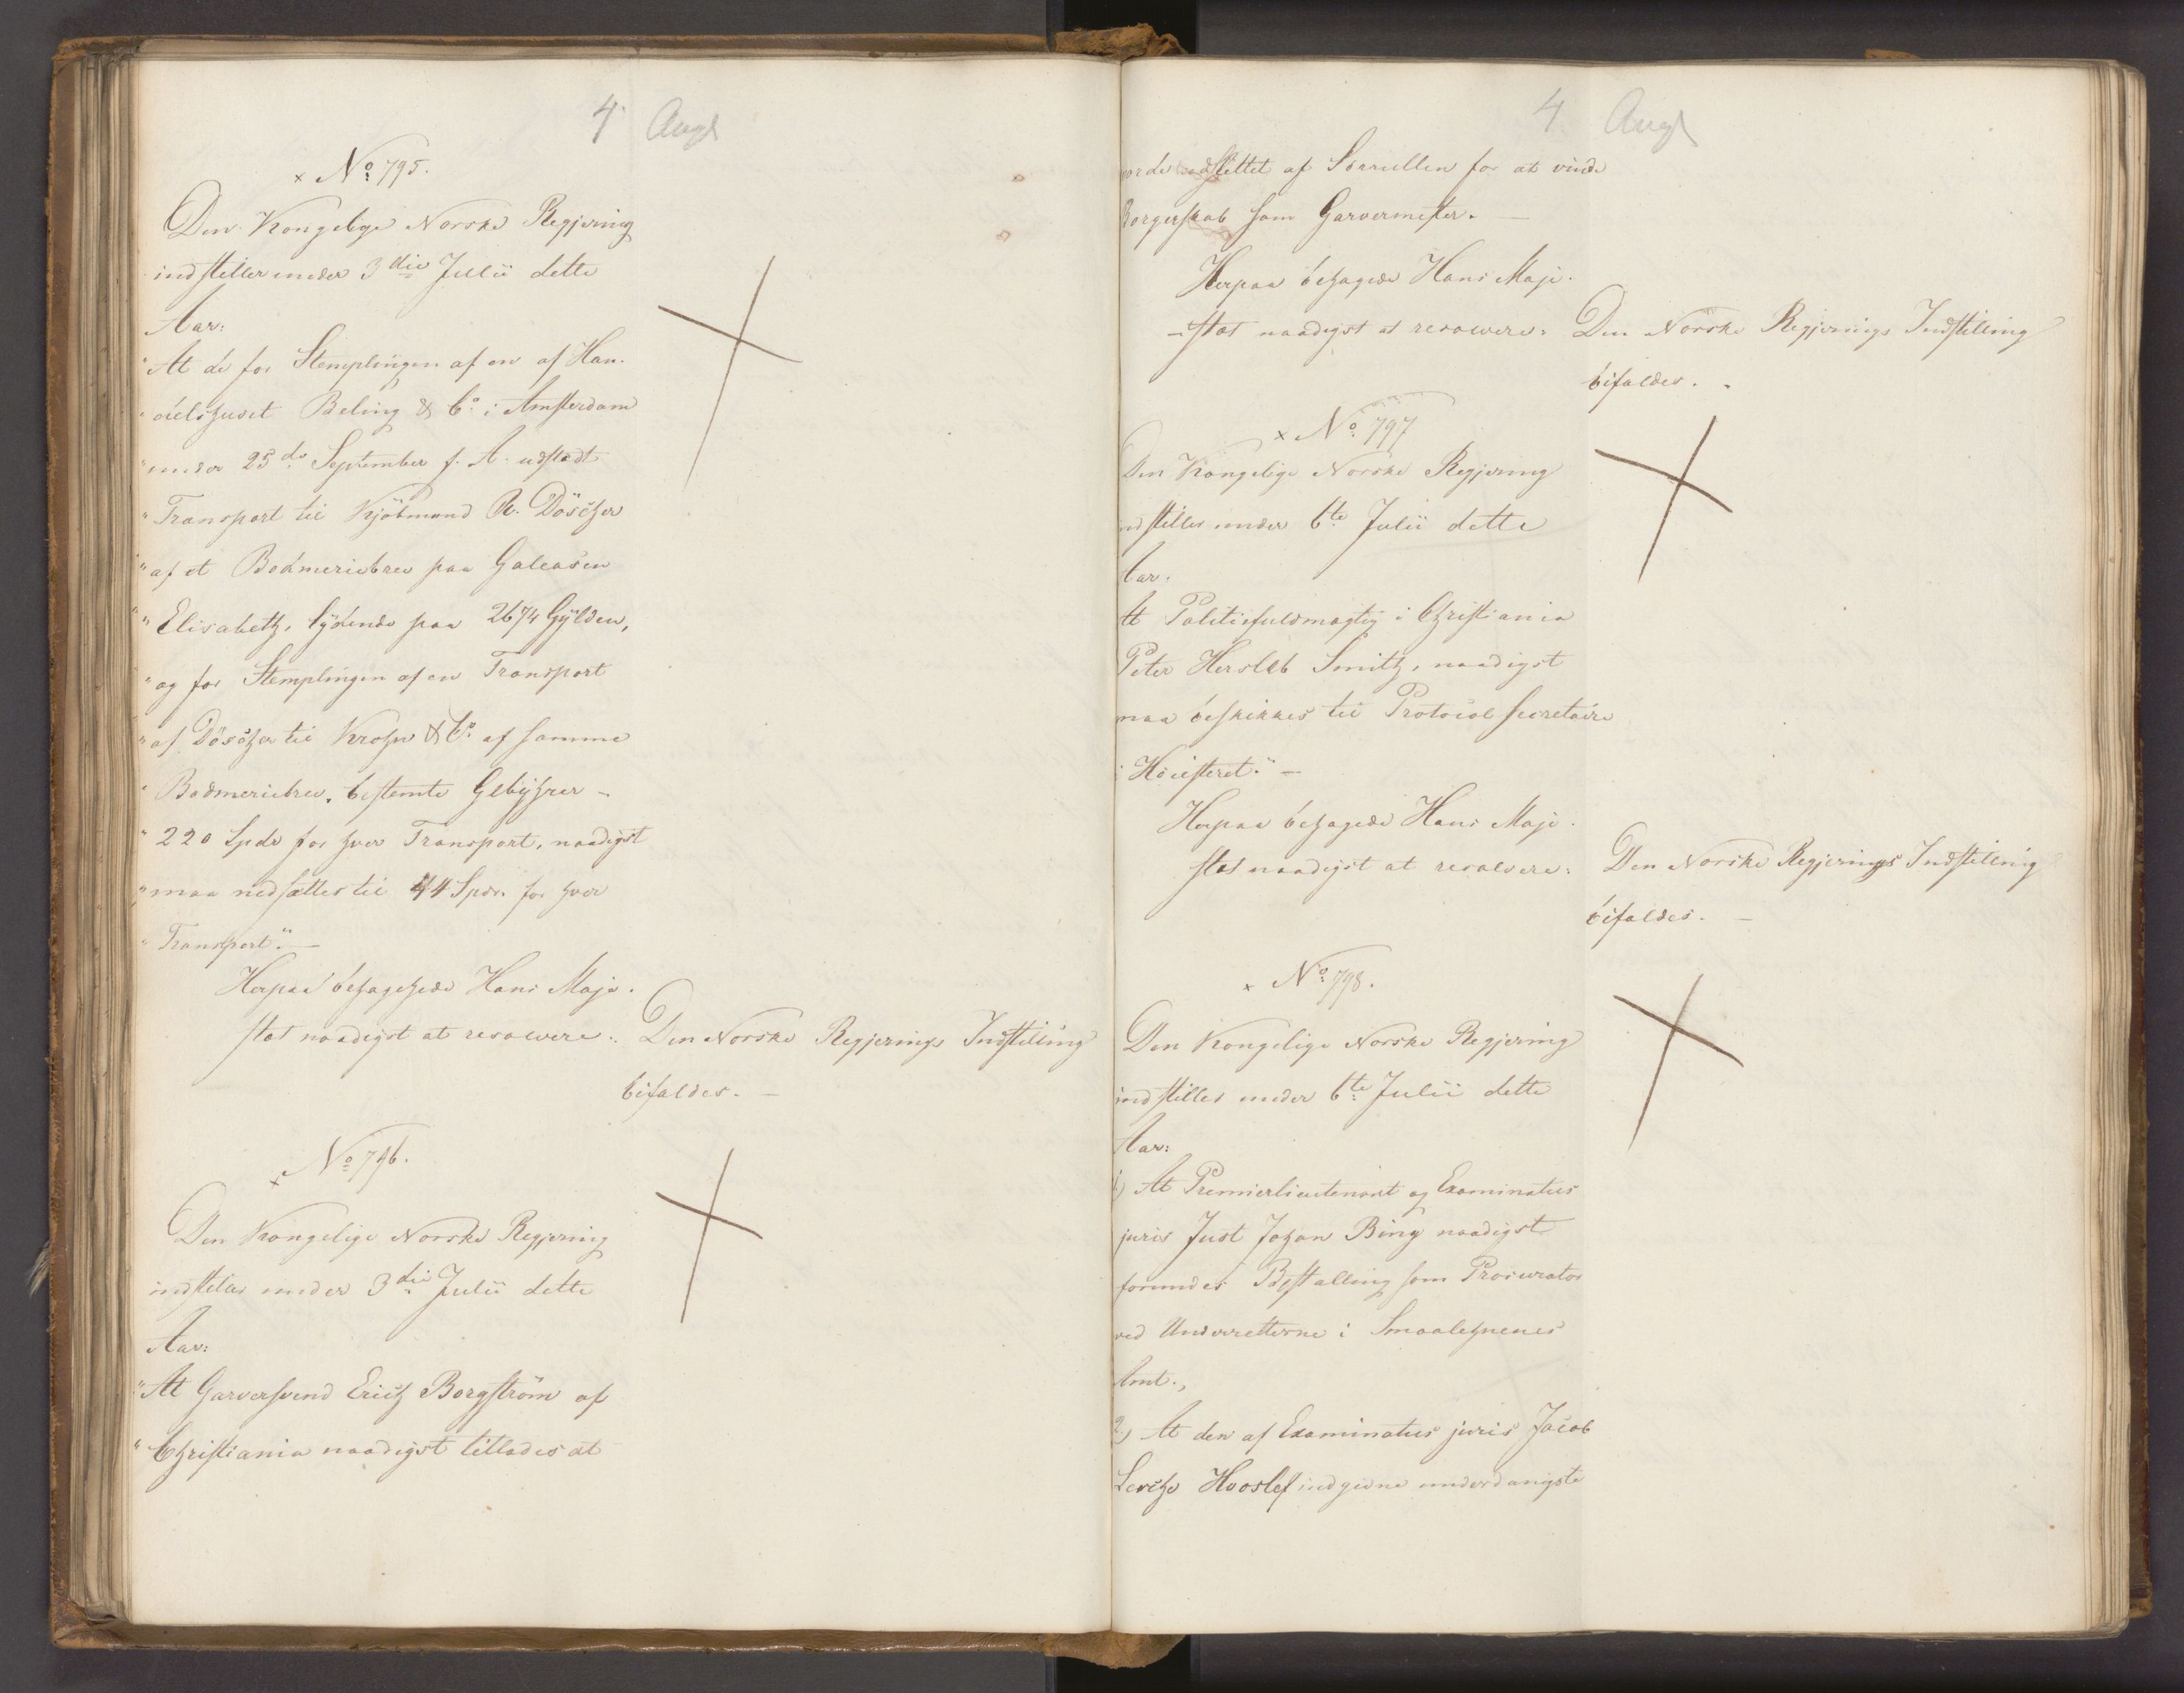 4 Augt
x No 795.
Den Kongelige Norske Regjering
indstiller under 3die Julii dette
Aar:
"At de for Stemplingen af en af Han-
"delshuset Beling & Co i Amsterdam
"under 25de September f. A. udstædt
"Transport til Kjöbmand R. Döscher
"af et Bodmeriebrev paa Galeasen
"Elisabeth, lydende paa 2674 Gylden,
"og for Stemplingen af en Transport
"af Döscher til Krohn & Co af samme
"Bodmeriebrev, bestemte Gebyhrer –
"220 Spdr for hver Transport, naadigst
"maa nedsættes til 44 Spdr. for hver
"Transport". –
Herpaa behagehede Hans Maje-
stæt naadigst at resolvere: Den Norske Regjerings Indstilling
bifaldes. –
x No 796.
Den Kongelige Norske Regjering
indstiller under 3die Julii dette
Aar:
"At Garversvend Erich Borgström af
"Christiania naadigst tillades at
4 Augt
vorde udslettet af Sörullen for at vinde
Borgerskab som Garvermester. –
Herpaa behagede Hans Maje-
-stæt naadigst at resolvere: Den Norske Regjerings Indstilling
bifaldes. -
x No 797
Den Kongelige Norske Regjering
indstiller under 6te Julii dette
Aar.
At Politiefuldmægtig i Christiania
Peter Hersleb Smith, naadigst
maa beskikkes til Protocolsecretaire
i Höiesteret." –
Herpaa behagede Hans Maje-
stæt naadigst at resolvere: Den Norske Regjerings Indstilling
bifaldes. –
x No 798.
Den Kongelige Norske Regjering
indstiller under 6te Julii dette
Aar:
1) At Premierlieutenant og Examinatus
juris Just Johan Bing naadigst
forundes Bestalling som Procurator
ved Underretterne i Smaalehnenes
Amt.,
2) At den af Examinatus juris Jacob
Lerche Hooslef indgivne underdanigste